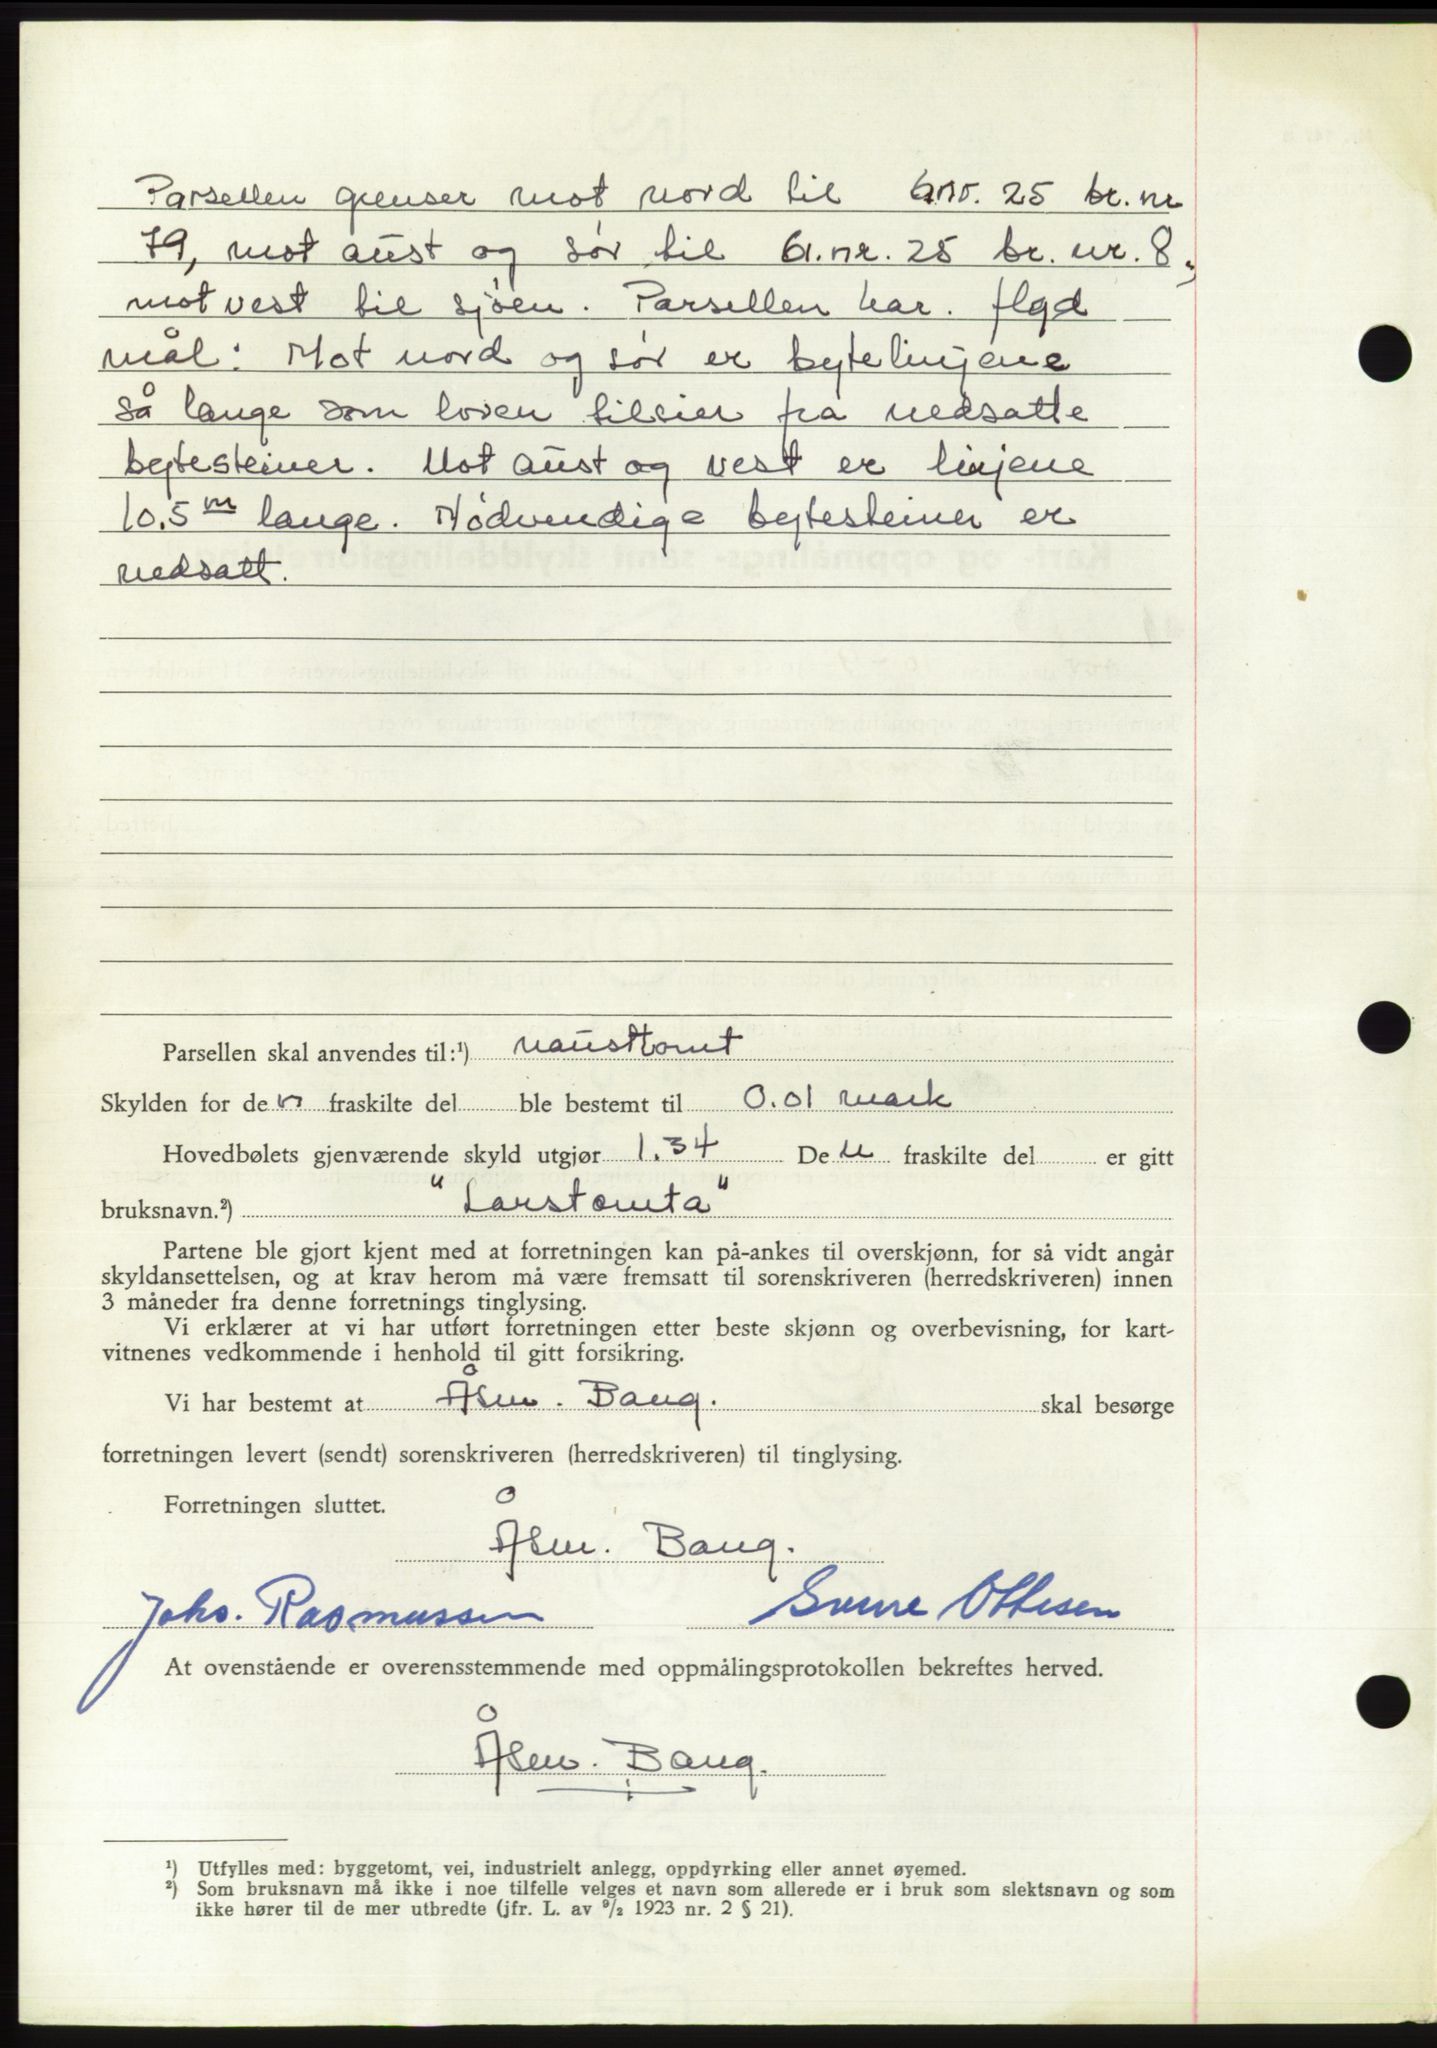 Parsellen grenser mot nord til G.nr. 25 br.nr
79, mot aust og sør til G.nr. 25 br. nr. 8,
mot vest til sjøen. Parsellen har. flgd
mål: Mot nord og sør er bytelinjene
så lange som loven tilsier fra nedsatte
bytesteiner. Mot aust og vest er linjene
10.5 m lange. Nødvendige bytesteiner er
nedsatt.
Parsellen skal anvendes til:¹) nausttomt
Skylden for den fraskilte del ble bestemt til 0.01 mark
Hovedbølets gjenværende skyld utgjør 1.34 Den fraskilte del er gitt
bruksnavn.²) "Larstomta"
Partene ble gjort kjent med at forretningen kan på-ankes til overskjønn, for så vidt angår
skyldansettelsen, og at krav herom må være fremsatt til sorenskriveren (herredskriveren) innen
3 måneder fra denne forretnings tinglysing.
Vi erklærer at vi har utført forretningen etter beste skjønn og overbevisning, for kart-
vitnenes vedkommende i henhold til gitt forsikring.
Vi har bestemt at Åsm. Bang. skal besørge
forretningen levert (sendt) sorenskriveren (herredskriveren) til tinglysing.
Forretningen sluttet.
Åsm. Bang.
Johs. Rasmussen Sverre Ottesen
At ovenstående er overensstemmende med oppmålingsprotokollen bekreftes herved.
Åsm. Bang.
¹) Utfylles med: byggetomt, vei, industrielt anlegg, oppdyrking eller annet øyemed.
²) Som bruksnavn må ikke i noe tilfelle velges et navn som allerede er i bruk som slektsnavn og som
ikke hører til de mer utbredte (jfr. L. av ⁹/₂ 1923 nr. 2 § 21).